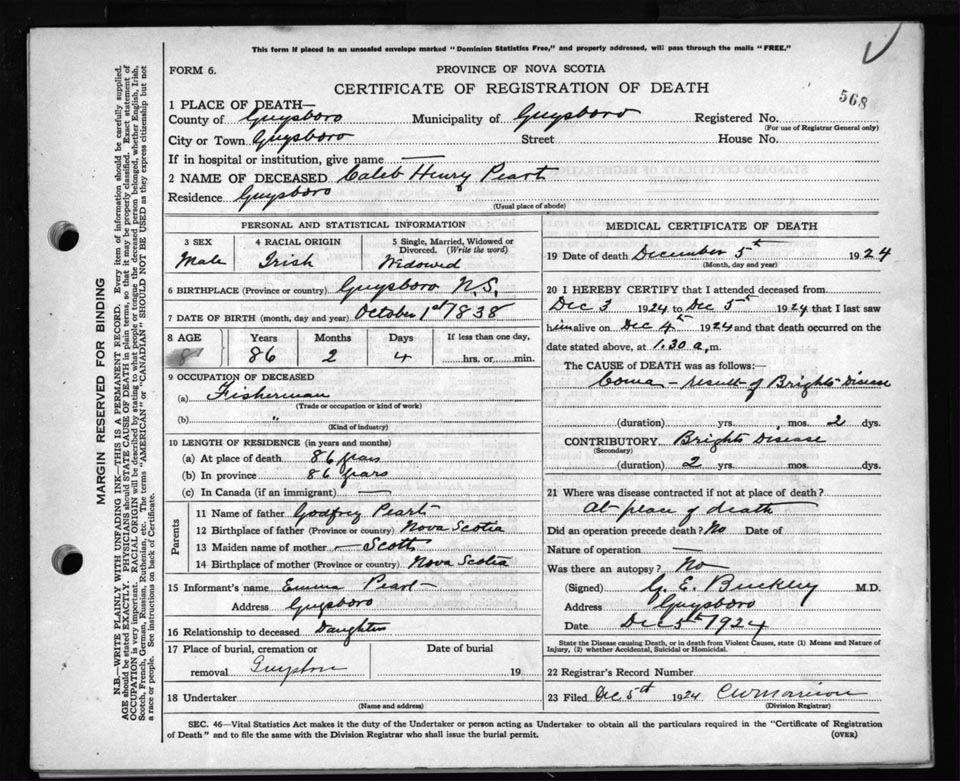 This form if placed in an unsealed envelope marked "Dominion Statistics Free," and properly addressed, will pass through the mails "FREE."
FORM 6.
PROVINCE OF NOVA SCOTIA
CERTIFICATE OF REGISTRATION OF DEATH
568
1 PLACE OF DEATH—
County of Guysboro Municipality of Guysboro Registered No.
(For use of Registrar General only)
City or Town Guysboro Street House No.
If in hospital or institution, give name —
2 NAME OF DECEASED Caleb Henry Peart
Residence Guysboro
(Usual place of abode)
PERSONAL AND STATISTICAL INFORMATION
3 SEX 4 RACIAL ORIGIN 5 Single, Married, Widowed or Divorced. (Write the word)
Male Irish Widowed
6 BIRTHPLACE (Province or country) Guysboro N.S.
7 DATE OF BIRTH (month, day and year) October 1st 1838
8 AGE Years Months Days If less than one day,
86 2 4 hrs. or min.
9 OCCUPATION OF DECEASED
(a) Fisherman
(Trade or occupation or kind of work)
(b) "
(Kind of industry)
10 LENGTH OF RESIDENCE (in years and months)
(a) At place of death 86 years
(b) In province 86 years
(c) In Canada (if an immigrant) —
Parents
11 Name of father Godfrey Peart
12 Birthplace of father (Province or country) Nova Scotia
13 Maiden name of mother — Scott
14 Birthplace of mother (Province or country) Nova Scotia
15 Informant's name Emma Peart
Address Guysboro
16 Relationship to deceased Daughter
17 Place of burial, cremation or removal Guysboro Date of burial 19
18 Undertaker
(Name and address)
MEDICAL CERTIFICATE OF DEATH
19 Date of death December 5th 1924
(Month, day and year)
20 I HEREBY CERTIFY that I attended deceased from
Dec 3 1924 to Dec 5th 1924 that I last saw
him alive on Dec 4th 1924 and that death occurred on the
date stated above, at 1.30 a.m.
The CAUSE of DEATH was as follows:—
Coma — result of Brights Disease
(duration) yrs. mos. 2 dys.
CONTRIBUTORY Brights Disease
(Secondary)
(duration) 2 yrs. mos. dys.
21 Where was disease contracted if not at place of death?
At place of death
Did an operation precede death? No Date of
Nature of operation —
Was there an autopsy? No
(Signed) G. E. Buckley M.D.
Address Guysboro
Date Dec 5th 1924
State the Disease causing Death, or in death from Violent Causes, state (1) Means and Nature of
Injury, (2) whether Accidental, Suicidal or Homicidal.
22 Registrar's Record Number
23 Filed Dec 5th 1924 C W Morrison
(Division Registrar)
SEC. 46—Vital Statistics Act makes it the duty of the Undertaker or person acting as Undertaker to obtain all the particulars required in the "Certificate of Registration
of Death" and to file the same with the Division Registrar who shall issue the burial permit.
(OVER)
MARGIN RESERVED FOR BINDING
N.B.—WRITE PLAINLY WITH UNFADING INK—THIS IS A PERMANENT RECORD. Every item of information should be carefully supplied.
AGE should be stated EXACTLY. PHYSICIANS should STATE CAUSE OF DEATH in plain terms, so that it may be properly classified. Exact statement of
OCCUPATION is very important. RACIAL ORIGIN will be described by stating to what people or tongue the deceased person belonged, whether English, Irish,
Scotch, French, German, Russian, Ruthenian, etc. The terms "AMERICAN" or "CANADIAN" SHOULD NOT BE USED as they express citizenship but not
a race or people. See instructions on back of Certificate.